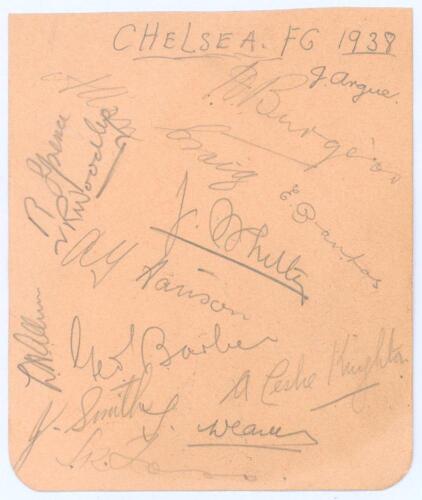 CHELSEA. FG 1938
J. Argue.
H. Burgess
Craig
R Spence
V R Woodley
E. Brantos
J. Whitley
A Y Hanson
Geo Barber
A Leslie Knighton
J. Smith
J. Weaver